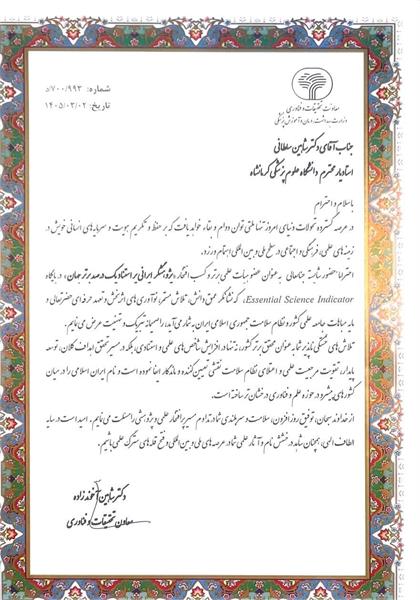 معاونت تحقیقات و فناوری
وزارت بهداشت، درمان و آموزش پزشکی
شماره: ۷۰۰/۹۹۳/د
تاریخ: ۱۴۰۵/۰۳/۰۲
جناب آقای دکتر شاهین سلطانی
استادیار محترم دانشگاه علوم پزشکی کرمانشاه
با سلام و احترام
در عرصه گسترده تحولات دنیای امروز تنها ملتی توان دوام و بقاء خواهد یافت که بر حفظ و تکریم هویت و سرمایه‌های انسانی خویش در
زمینه‌های علمی، فرهنگی و اجتماعی در سطح ملی و بین المللی اهتمام ورزد.
احتراما حضور شایسته جنابعالی به عنوان عضو هیات علمی برتر و کسب افتخار "پژوهشگر ایرانی پر استناد یک درصد برتر جهان"، در پایگاه
Essential Science Indicator، که نشانگر عمق دانش، تلاش مستمر، نوآوری‌های اثربخش و تعهد حرفه‌ای حضرتعالی و
مایه مباهات جامعه علمی کشور و نظام سلامت جمهوری اسلامی ایران به شمار می‌آید، را صمیمانه تبریک و تهنیت عرض می‌نمایم.
تلاش‌های خستگی ناپذیر شما به عنوان محقق برتر کشور، نه تنها در افزایش شاخص‌های علمی و استنادی، بلکه در مسیر تحقق اهداف کلان، توسعه
پایدار، تقویت مرجعیت علمی و اعتلای نظام سلامت نقشی تعیین کننده و ماندگار ایفا نموده است و نام ایران اسلامی را در میان
کشورهای پیشرو در حوزه علم و فناوری درخشان تر ساخته است.
از خداوند سبحان، توفیق روز افزون، سلامت و سربلندی شما در تداوم مسیر پر افتخار علمی و پژوهشی را مسئلت می‌نمایم. امید است در سایه
الطاف الهی، همچنان شاهد درخشش نام و آثار علمی شما در عرصه‌های ملی و بین المللی و فتح قله‌های سترگ علمی باشیم.
دکتر شاهین آخوندزاده
معاون تحقیقات و فناوری